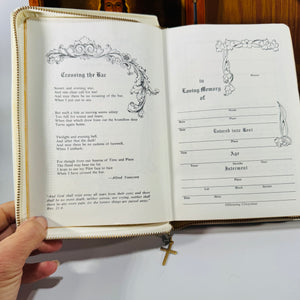 Crossing the Bar
Sunset and evening star,
And one clear call for me!
And may there be no moaning of the bar,
When I put out to sea,
But such a tide as moving seems asleep,
Too full for sound and foam,
When that which drew from out the boundless deep
Turns again home.
Twilight and evening bell,
And after that the dark!
And may there be no sadness of farewell,
When I embark;
For though from our bourne of Time and Place
The flood may bear me far,
I hope to see my Pilot face to face
When I have crossed the bar.
—Alfred Tennyson
"And God shall wipe away all tears from their eyes; and there
shall be no more death, neither sorrow, nor crying, neither shall
there be any more pain: for the former things are passed away."
Rev. 21:4
In
Loving Memory
of
Name
Entered into Rest
Date
Place
Age
Years
Months
Days
Interment
Cemetery
Place
Lot
Block
Section
Date
Time
Officiating Clergyman